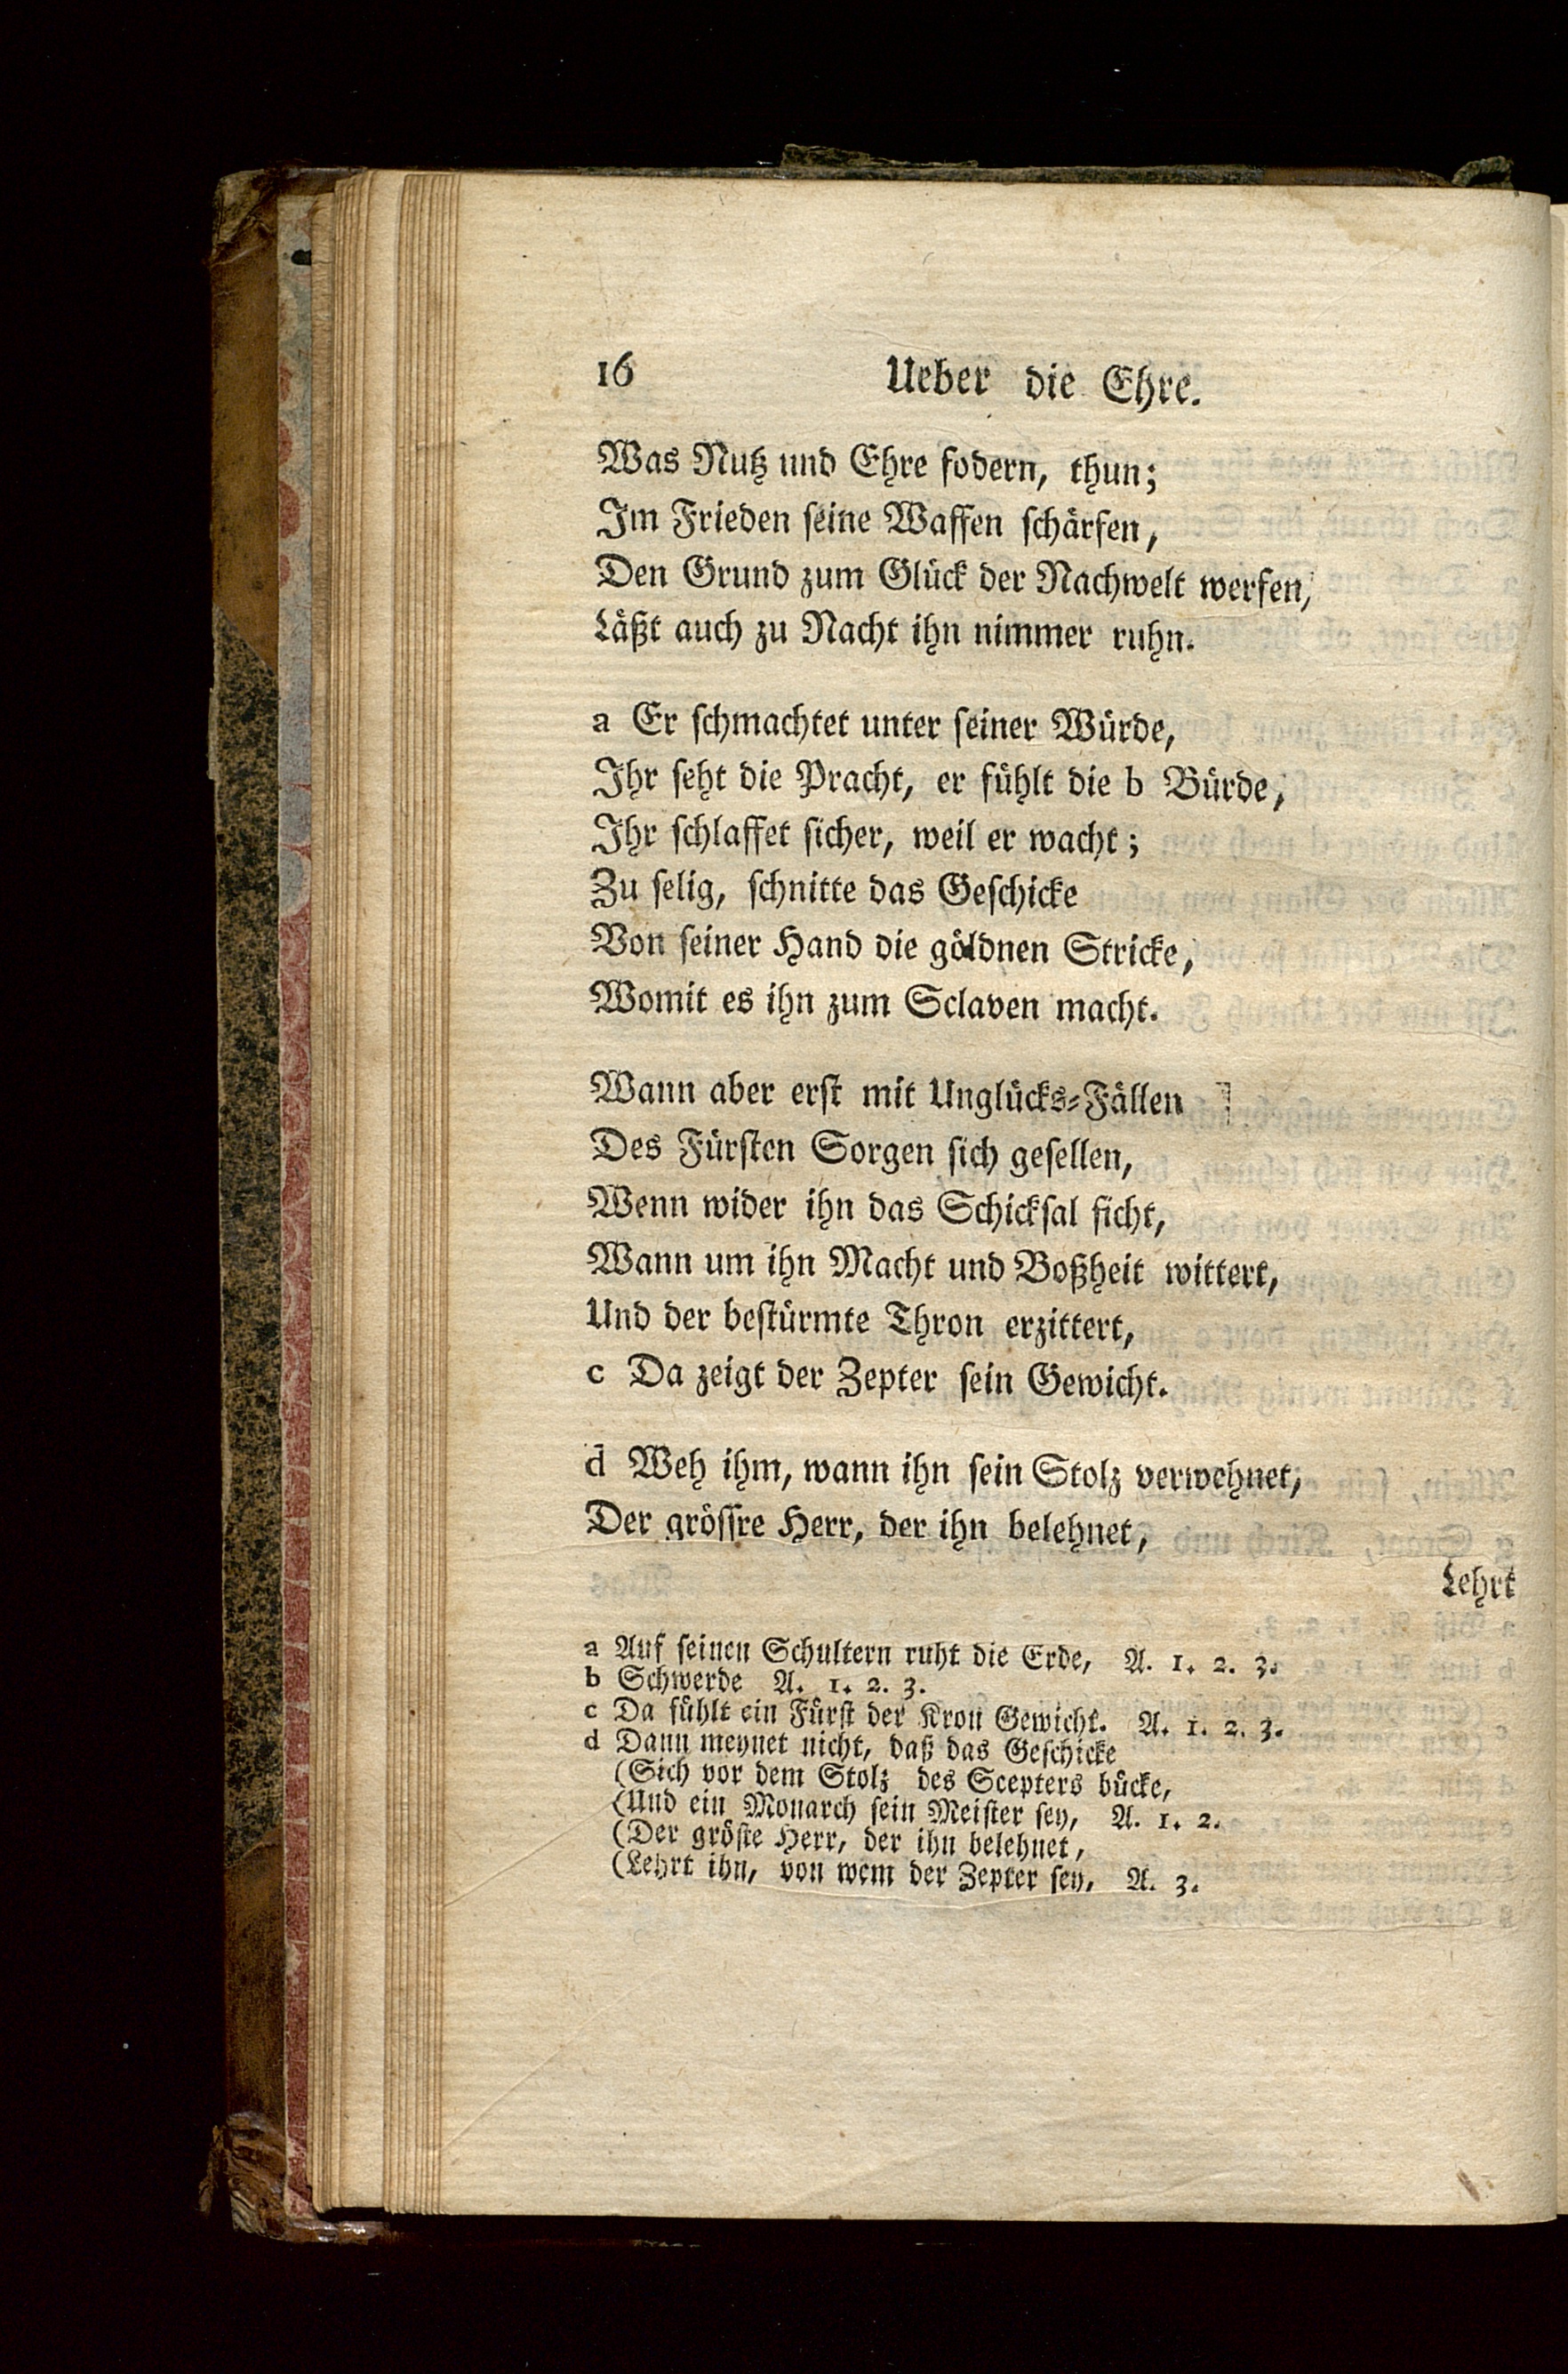 16 Ueber die Ehre.
Was Nutz und Ehre fodern, thun;
Im Frieden seine Waffen schärfen,
Den Grund zum Glück der Nachwelt werfen,
Läßt auch zu Nacht ihn nimmer ruhn.
a Er schmachtet unter seiner Würde,
Ihr seht die Pracht, er fühlt die b Bürde,
Ihr schlaffet sicher, weil er wacht;
Zu selig, schnitte das Geschicke
Von seiner Hand die göldnen Stricke,
Womit es ihn zum Sclaven macht.
Wann aber erst mit Unglücks-Fällen
Des Fürsten Sorgen sich gesellen,
Wenn wider ihn das Schicksal ficht,
Wann um ihn Macht und Boßheit wittert,
Und der bestürmte Thron erzittert,
c Da zeigt der Zepter sein Gewicht.
d Weh ihm, wann ihn sein Stolz verwehnet,
Der grössre Herr, der ihn belehnet,
Lehrt
a Auf seinen Schultern ruht die Erde, A. 1. 2. 3.
b Schwerde A. 1. 2. 3.
c Da fühlt ein Fürst der Kron Gewicht. A. 1. 2. 3.
d Dann meynet nicht, daß das Geschicke
(Sich vor dem Stolz des Scepters bücke,
(Und ein Monarch sein Meister sey, A. 1. 2.
(Der gröste Herr, der ihn belehnet,
(Lehrt ihn, von wem der Zepter sey, A. 3.